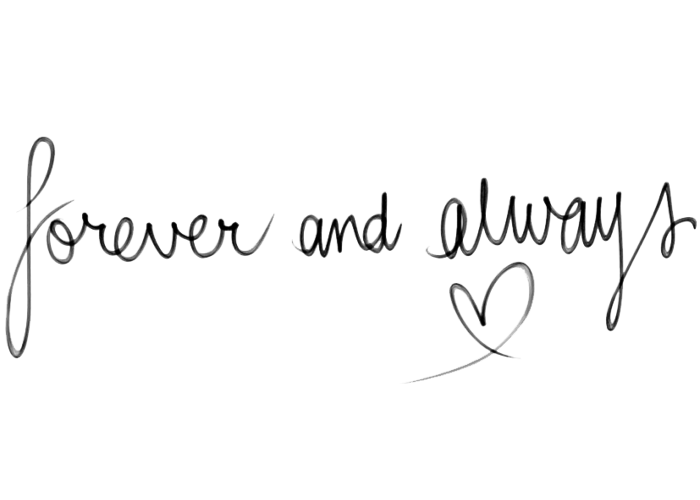 forever and always